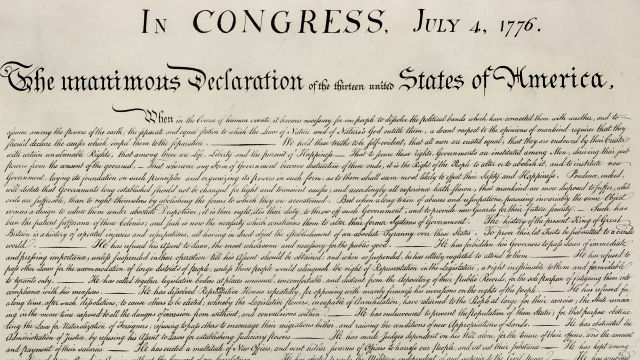 IN CONGRESS, JULY 4, 1776.
The unanimous Declaration of the thirteen united States of America,
When in the Course of human events, it becomes necessary for one people to dissolve the political bands which have connected them with another, and to
assume among the powers of the earth, the separate and equal station to which the Laws of Nature and of Nature's God entitle them, a decent respect to the opinions of mankind requires that they
should declare the causes which impel them to the separation. We hold these truths to be self-evident, that all men are created equal, that they are endowed by their Creator
with certain unalienable Rights, that among these are Life, Liberty and the pursuit of Happiness. — That to secure these rights, Governments are instituted among Men, deriving their just
powers from the consent of the governed, — That whenever any Form of Government becomes destructive of these ends, it is the Right of the People to alter or to abolish it, and to institute new
Government, laying its foundation on such principles and organizing its powers in such form, as to them shall seem most likely to effect their Safety and Happiness. Prudence, indeed,
will dictate that Governments long established should not be changed for light and transient causes; and accordingly all experience hath shewn, that mankind are more disposed to suffer, while
evils are sufferable, than to right themselves by abolishing the forms to which they are accustomed. But when a long train of abuses and usurpations, pursuing invariably the same Object
evinces a design to reduce them under absolute Despotism, it is their right, it is their duty, to throw off such Government, and to provide new Guards for their future security. — Such has
been the patient sufferance of these Colonies; and such is now the necessity which constrains them to alter their former Systems of Government. The history of the present King of Great
Britain is a history of repeated injuries and usurpations, all having in direct object the establishment of an absolute Tyranny over these States. To prove this, let Facts be submitted to a candid
world. He has refused his Assent to Laws, the most wholesome and necessary for the public good. He has forbidden his Governors to pass Laws of immediate
and pressing importance, unless suspended in their operation till his Assent should be obtained; and when so suspended, he has utterly neglected to attend to them. He has refused to
pass other Laws for the accommodation of large districts of people, unless those people would relinquish the right of Representation in the Legislature, a right inestimable to them and formidable
to tyrants only. He has called together legislative bodies at places unusual, uncomfortable, and distant from the depository of their public Records, for the sole purpose of fatiguing them into
compliance with his measures. He has dissolved Representative Houses repeatedly, for opposing with manly firmness his invasions on the rights of the people. He has refused for a
long time, after such dissolutions, to cause others to be elected; whereby the Legislative powers, incapable of Annihilation, have returned to the People at large for their exercise; the State remain
ing in the mean time exposed to all the dangers of invasion from without, and convulsions within. He has endeavoured to prevent the population of these States; for that purpose obstruc
ting the Laws for Naturalization of Foreigners; refusing to pass others to encourage their migrations hither, and raising the conditions of new Appropriations of Lands. He has obstructed the
Administration of Justice, by refusing his Assent to Laws for establishing Judiciary powers. He has made Judges dependent on his Will alone, for the tenure of their offices, and the amount
and payment of their salaries. He has erected a multitude of New Offices, and sent hither swarms of Officers to harrass our people, and eat out their substance. He has